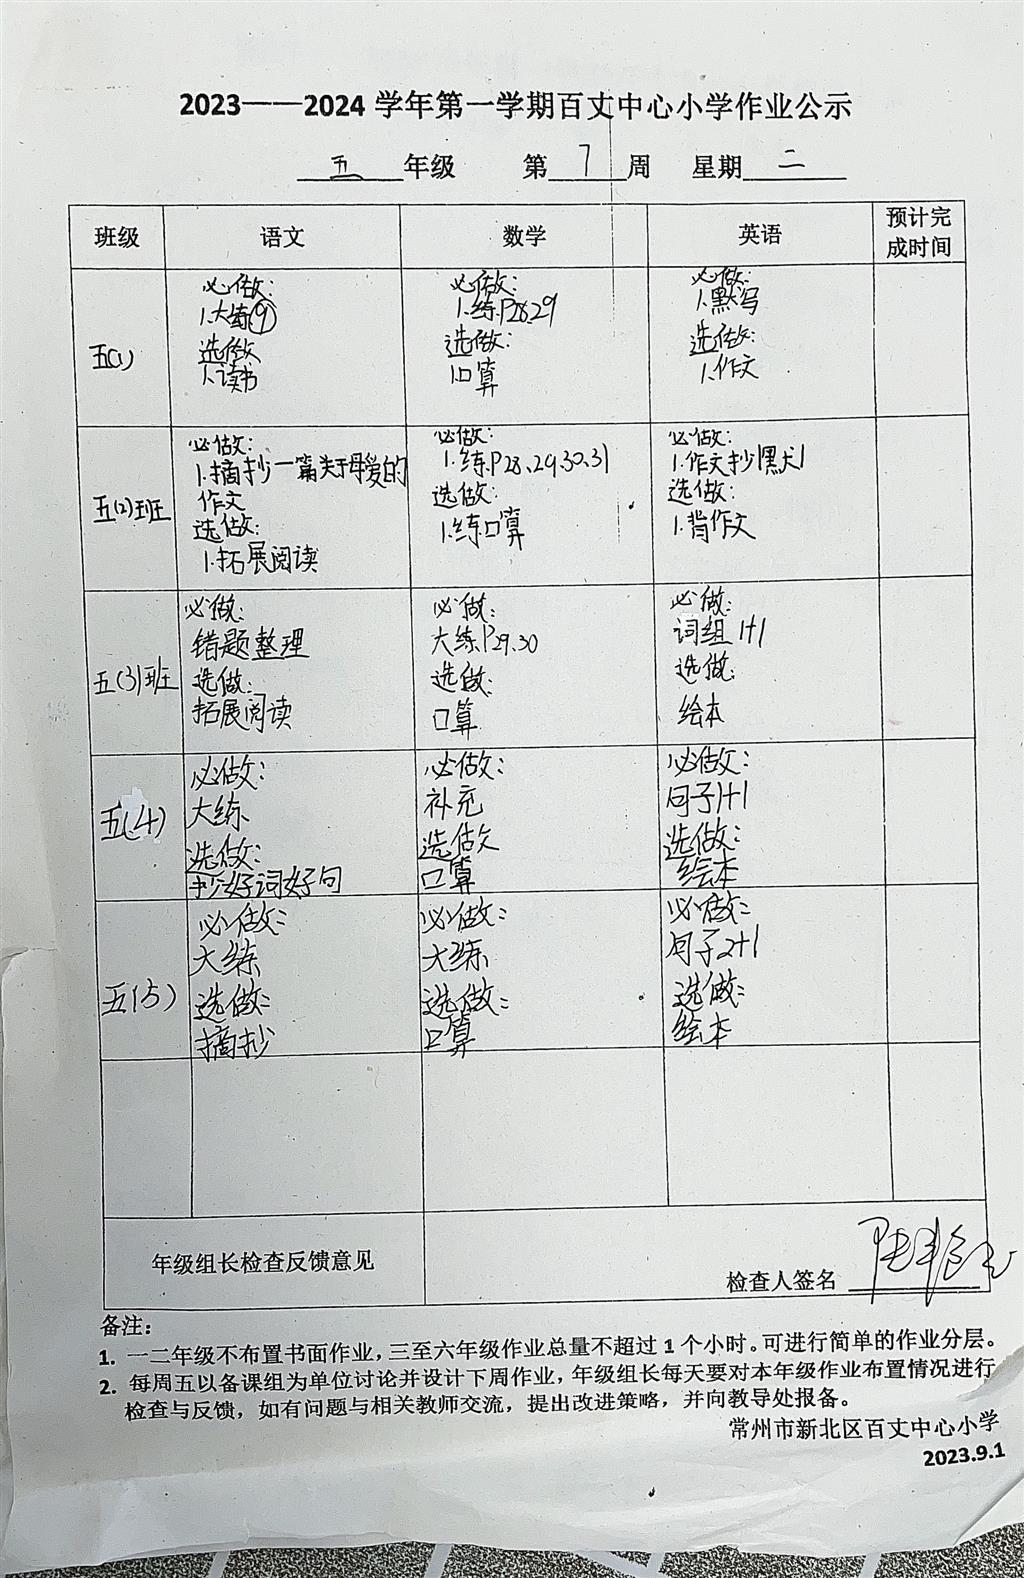 2023——2024 学年第一学期百丈中心小学作业公示
五 年级 第 7 周 星期 二
班级 语文 数学 英语 预计完成时间
五(1)
必做:
1.大练⑨
选做
1.读书
必做:
1.练P28.29
选做:
1.口算
必做:
1.默写
选做:
1.作文
五(2)班
必做:
1.摘抄一篇关于母爱的
作文
选做:
1.拓展阅读
必做:
1.练P28、29.30.31
选做:
1.练口算
必做:
1.作文抄1默1
选做:
1.背作文
五(3)班
必做:
错题整理
选做:
拓展阅读
必做:
大练P29.30
选做:
口算
必做:
词组 1+1
选做:
绘本
五(4)
必做:
大练
选做:
抄好词好句
必做:
补充
选做
口算
必做:
句子1+1
选做:
绘本
五(5)
必做:
大练
选做:
摘抄
必做:
大练
选做:
口算
必做:
句子2+1
选做:
绘本
年级组长检查反馈意见
检查人签名
备注:
1. 一二年级不布置书面作业，三至六年级作业总量不超过 1 个小时。可进行简单的作业分层。
2. 每周五以备课组为单位讨论并设计下周作业，年级组长每天要对本年级作业布置情况进行
检查与反馈，如有问题与相关教师交流，提出改进策略，并向教导处报备。
常州市新北区百丈中心小学
2023.9.1